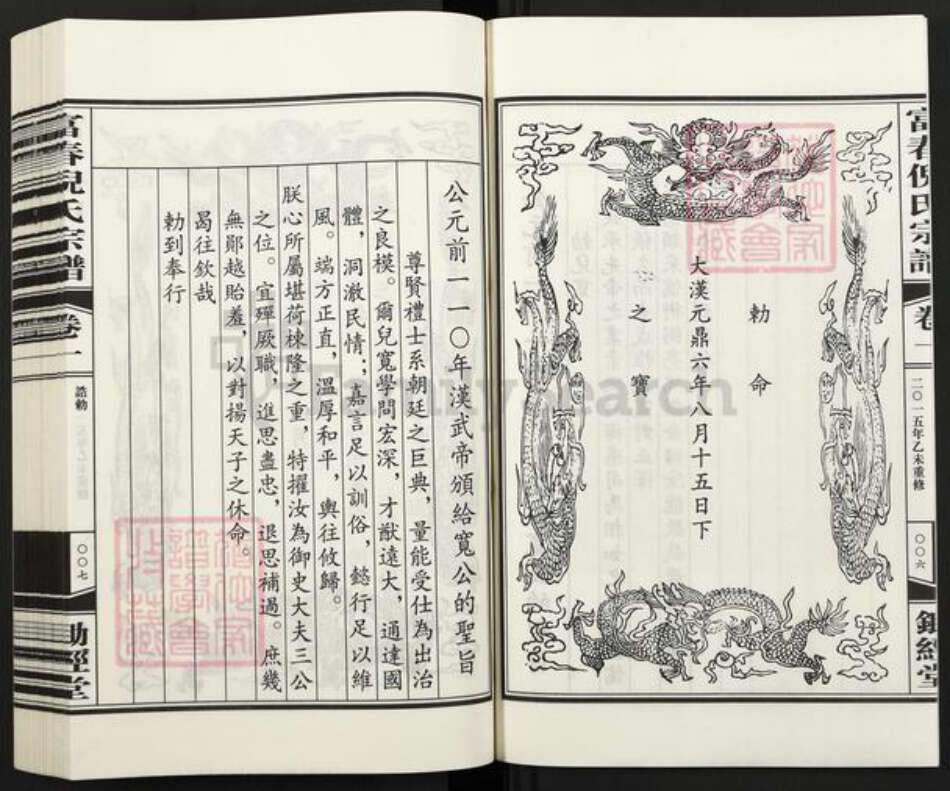 富春倪氏宗譜
卷一
二〇一五年乙未重修
〇〇六
鋤經堂
勅命
大漢元鼎六年八月十五日下
之寶
公元前一一〇年漢武帝頒給寬公的聖旨
尊賢禮士系朝廷之巨典,量能受仕為出治
之良模。爾兒寬學問宏深,才猷遠大,通達國
體,洞澈民情;嘉言足以訓俗,懿行足以維
風。端方正直,溫厚和平,輿往攸歸。
朕心所屬堪荷棟隆之重,特擢汝為御史大夫三公
之位。宜殫厥職,進思盡忠,退思補過。庶幾
無鄖越貽羞,以對揚天子之休命。
曷往欽哉
勅到奉行
富春倪氏宗譜
卷一
誥勅
〇〇七
鋤經堂
FamilySearch